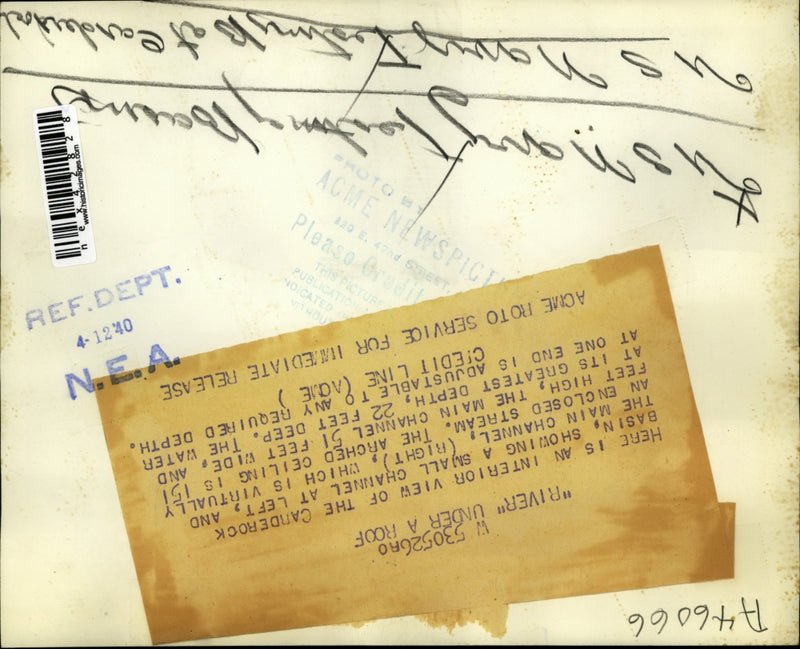 U S Navy Testing B at Carderock
* U S Navy Testing Basins
n e x 4 2 8 2 8
www.historicimages.com
PHOTO BY
ACME NEWSPICTU
220 E. 42nd STREET
Please Credit
THIS PICTURE
PUBLICATION
REF. DEPT.
4-12 40
N.E.A.
W 530526RO
"RIVER" UNDER A ROOF
HERE IS AN INTERIOR VIEW OF THE CANDEROCK
BASIN, SHOWING A SMALL CHANNEL AT LEFT, AND
THE MAIN CHANNEL, (RIGHT), WHICH IS VIRTUALLY
AN ENCLOSED STREAM. THE ARCHED CEILING IS 151
FEET HIGH, THE MAIN CHANNEL 51 FEET WIDE, AND
AT ITS GREATEST DEPTH, 22 FEET DEEP. THE WATER
AT ONE END IS ADJUSTABLE TO ANY REQUIRED DEPTH.
CREDIT LINE (ACME)
ACME ROTO SERVICE FOR IMMEDIATE RELEASE
A46066